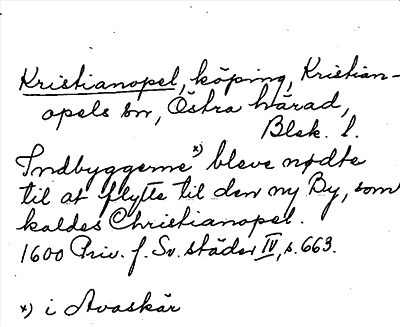 Kristianopel, köping, Kristian-
opels sn, Östra härad,
Blek. l.
Indbyggerne *) bleve nødte
til at flytte til den ny By, som
kaldes Christianopel.
1600 Priv. f. Sv. städer IV, s. 663.
*) i Avaskär